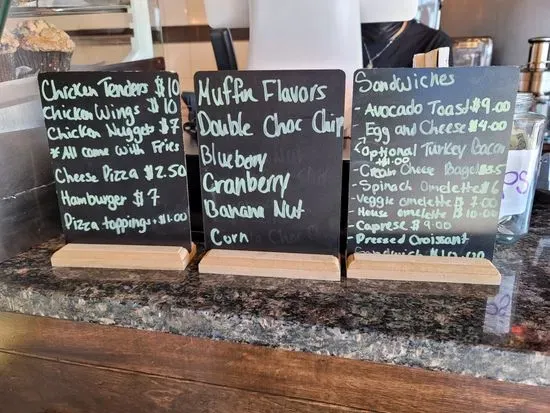 Chicken Tenders $10
Chicken Wings $10
Chicken Nuggets $7
*All come with Fries
Cheese Pizza $2.50
Hamburger $7
Pizza toppings+$1.00
Muffin Flavors
Double Choc Chip
Blueberry
Cranberry
Banana Nut
Corn
Sandwiches
-Avocado Toast $9.00
Egg and Cheese $4.00
*Optional Turkey Bacon
+$1.00
-Cream Cheese Bagel $3.5
-Spinach omelette $6
Veggie omelette $7.00
-House omelette $10.00
-Caprese $9.00
-Pressed Croissant
Sandwich $10.00